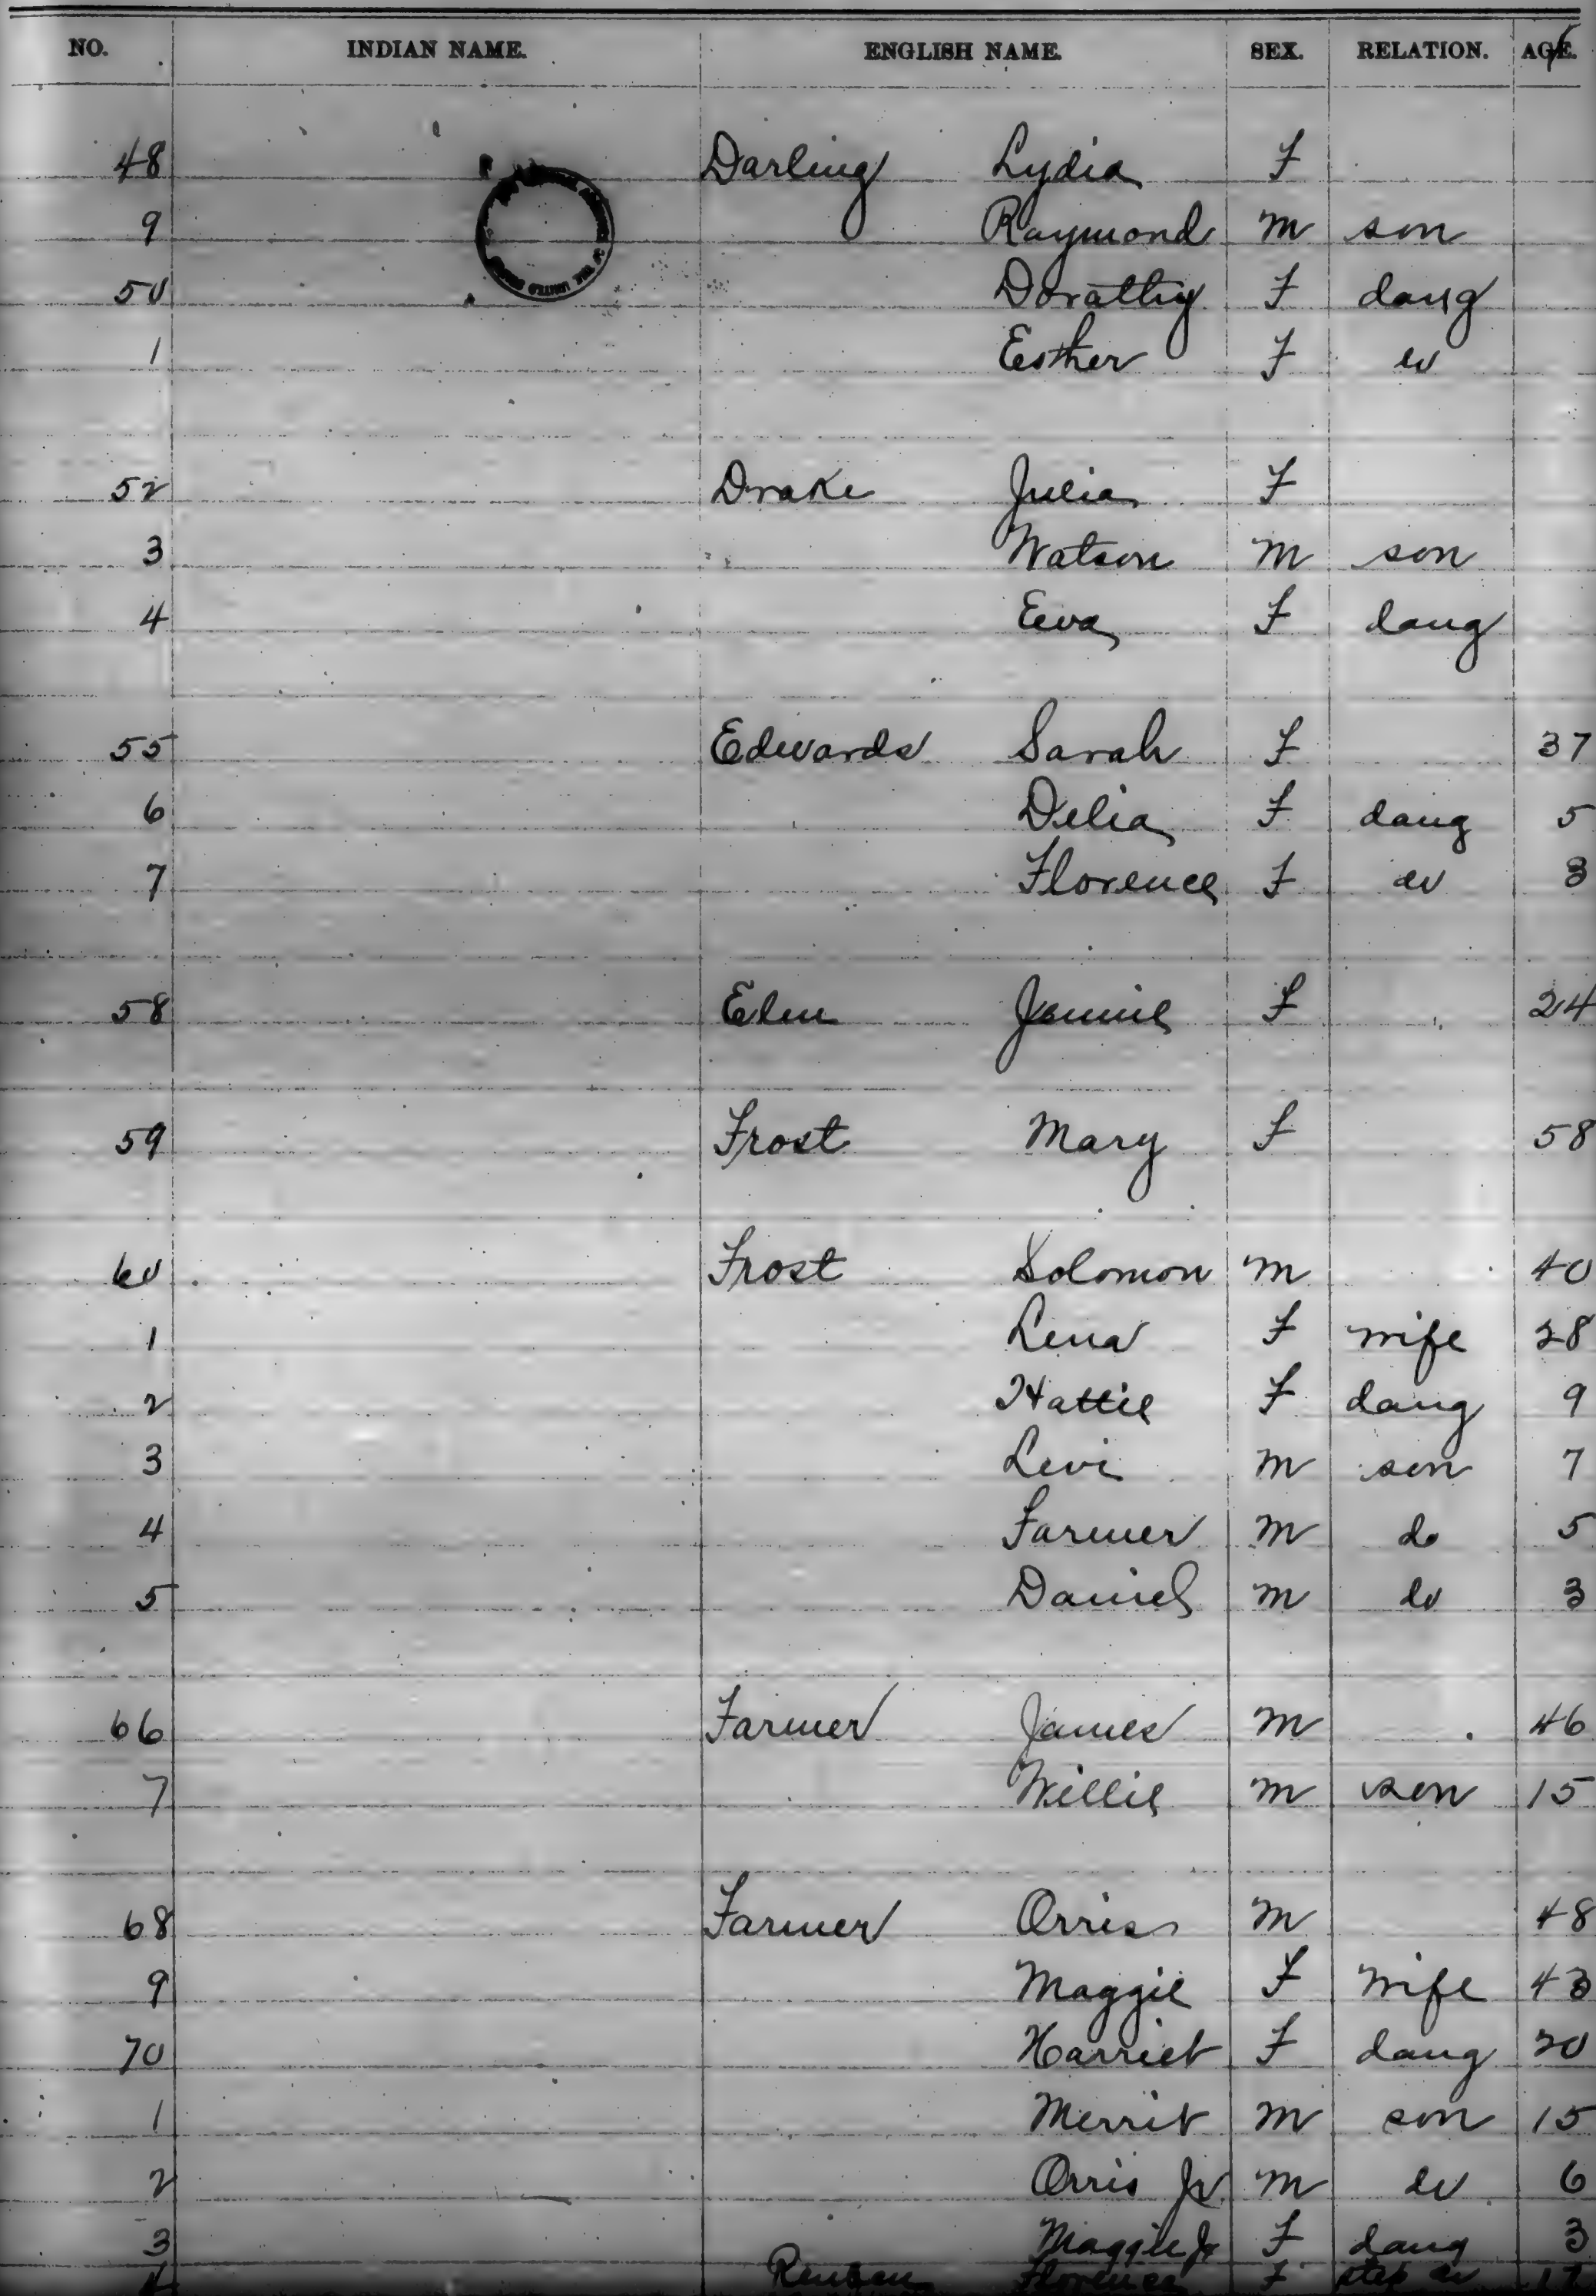 NO. INDIAN NAME. ENGLISH NAME. SEX. RELATION. AGE.
48 Darling Lydia F
9 Raymond M son
50 Doratthy F daug
1 Esther F do
52 Drake Julia F
3 Watson M son
4 Eva F daug
55 Edwards Sarah F 37
6 Delia F daug 5
7 Florence F do 3
58 Elm Jennie F 24
59 Frost Mary F 58
60 Frost Solomon M 40
1 Lena F wife 28
2 Hattie F daug 9
3 Levi M son 7
4 Farmer M do 5
5 Daniel M do 3
66 Farmer James M 46
7 Willie M son 15
68 Farmer Orris M 48
9 Maggie F wife 43
70 Harriet F daug 20
1 Merrit M son 15
2 Orris Jr M do 6
3 Maggie Jr F daug 3
4 Reuben Florence F step do 17